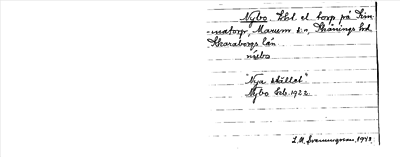 Nybo. Vbt el torp på Sim-
matorp, Marums sn, Skånings hd
Skaraborgs län.
nỳbo
"Nya stället"
Nybo Geb. 1922
L.M. Svenungsson, 1943